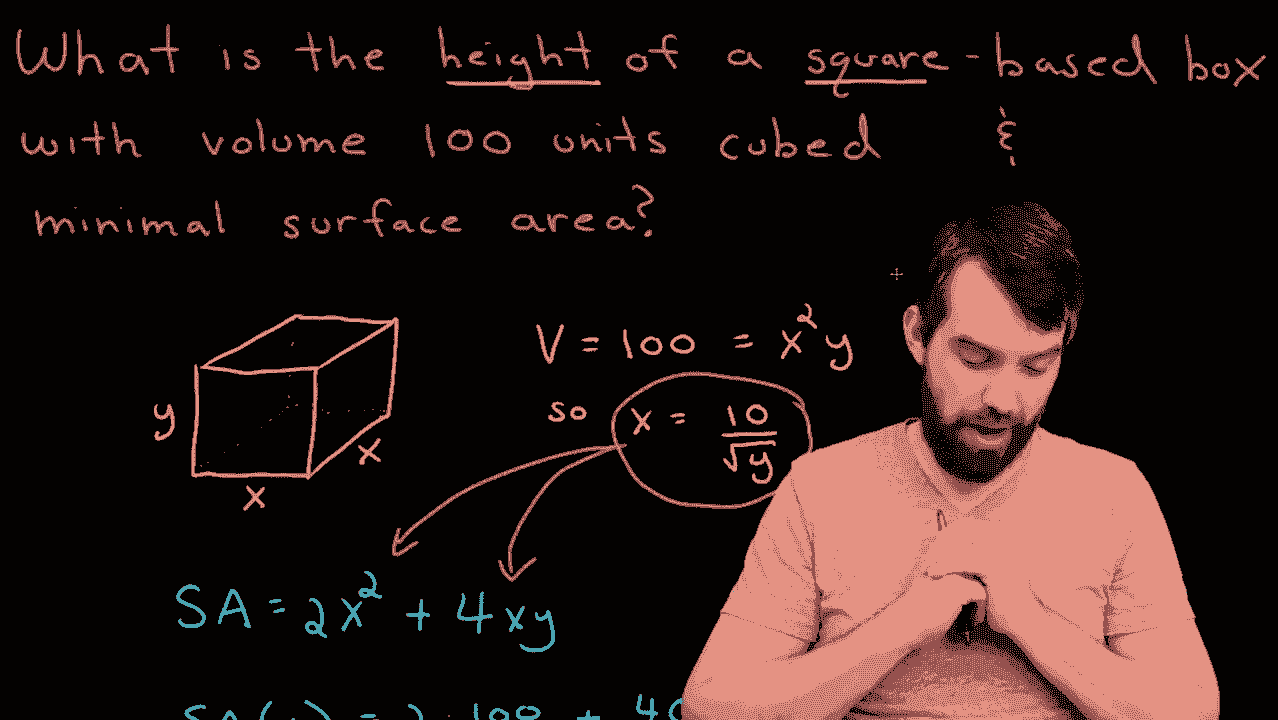 What is the height of a square-based box
with volume 100 units cubed &
minimal surface area?
V = 100 = x²y
so x = 10/√y
y
x
x
SA = 2x² + 4xy